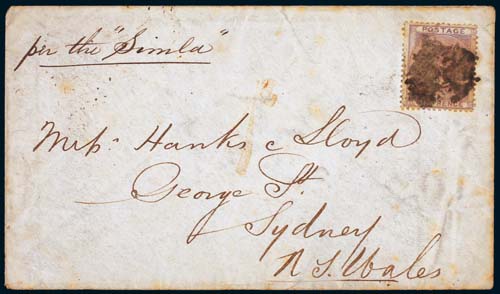 per the "Simla"
POSTAGE
PENCE
Mess. Hanks & Lloyd
George St.
Sydney
N S. Wales